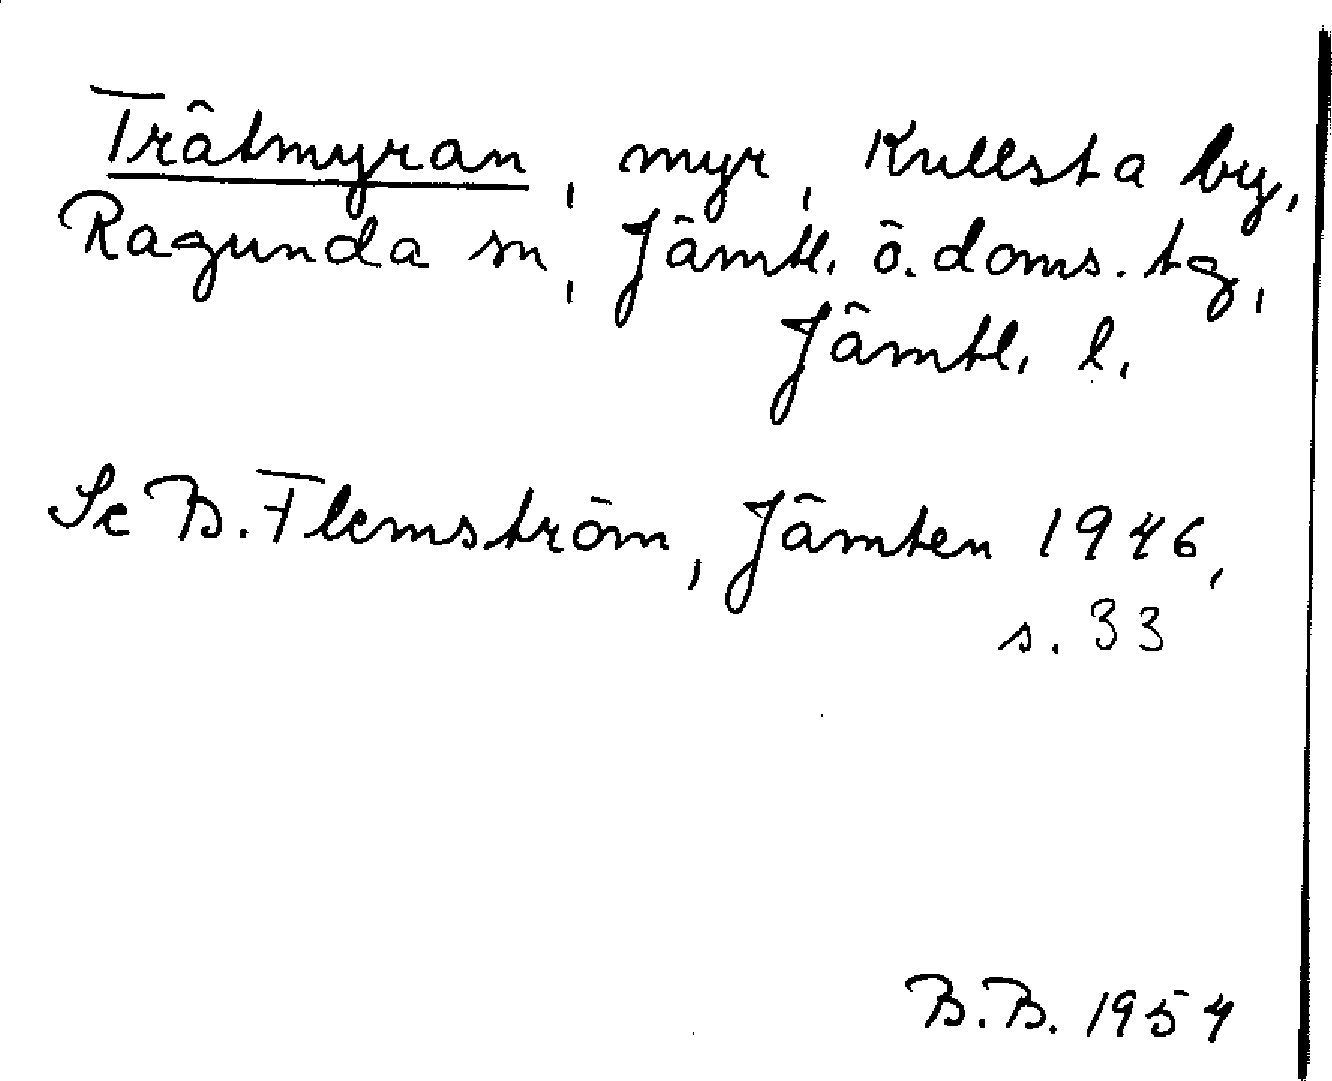 Trätmyran, myr, Kullsta by,
Ragunda sn, Jämtl. ö. doms. tg,
Jämtl. l.
Se B. Flemström, Jämten 1946,
s. 33
B.B. 1954